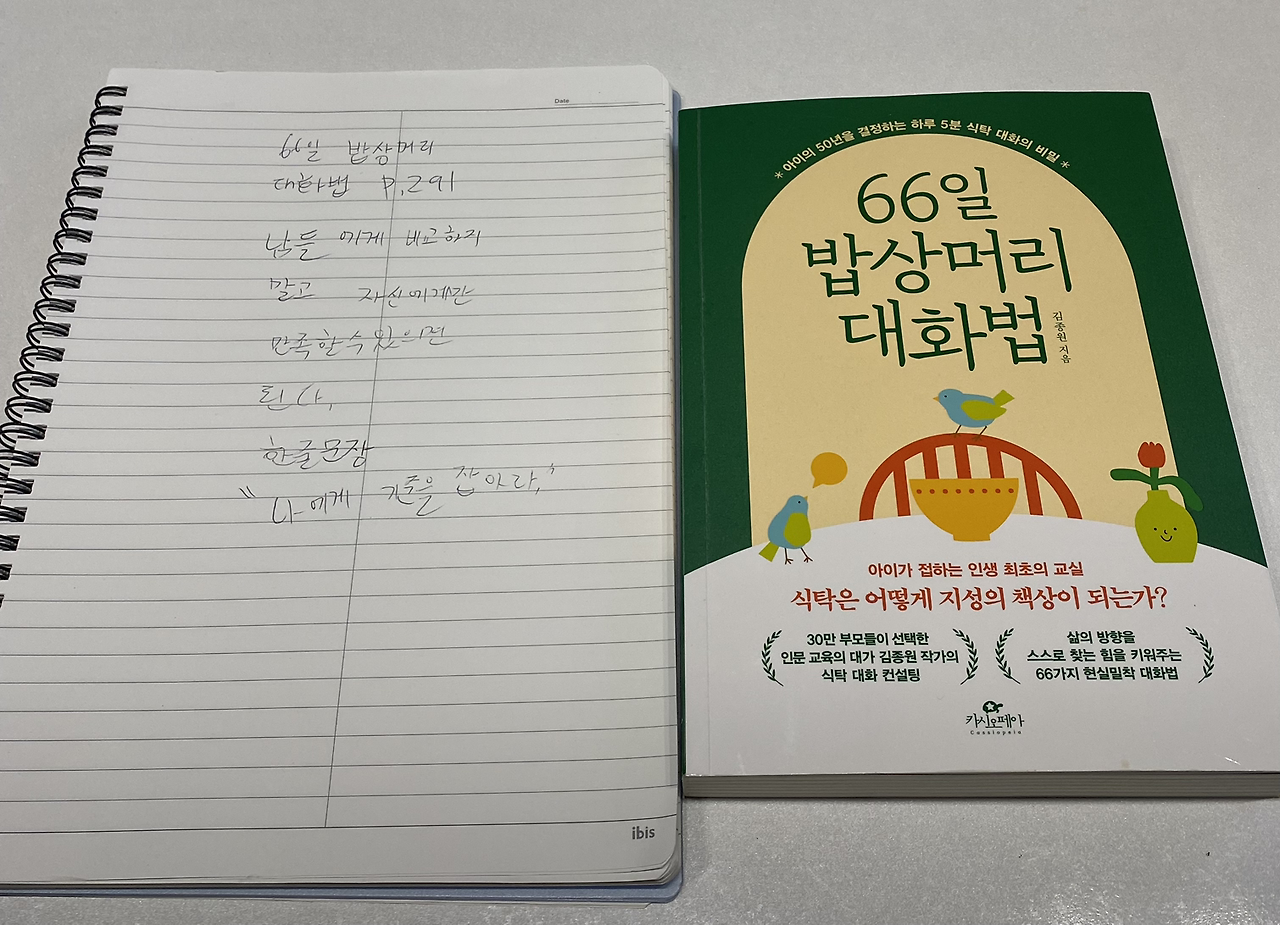 Date
66일 밥상머리
대화법 P.291
남들 에게 비교하지
말고 자신에게만
만족할 수 있의면
된다.
한글문장
"나에게 기준을 잡아라."
ibis
*아이의 50년을 결정하는 하루 5분 식탁 대화의 비밀*
66일
밥상머리
대화법
김종원 지음
아이가 접하는 인생 최초의 교실
식탁은 어떻게 지성의 책상이 되는가?
30만 부모들이 선택한
인문 교육의 대가 김종원 작가의
식탁 대화 컨설팅
삶의 방향을
스스로 찾는 힘을 키워주는
66가지 현실밀착 대화법
카시오페아
Cassiopeia